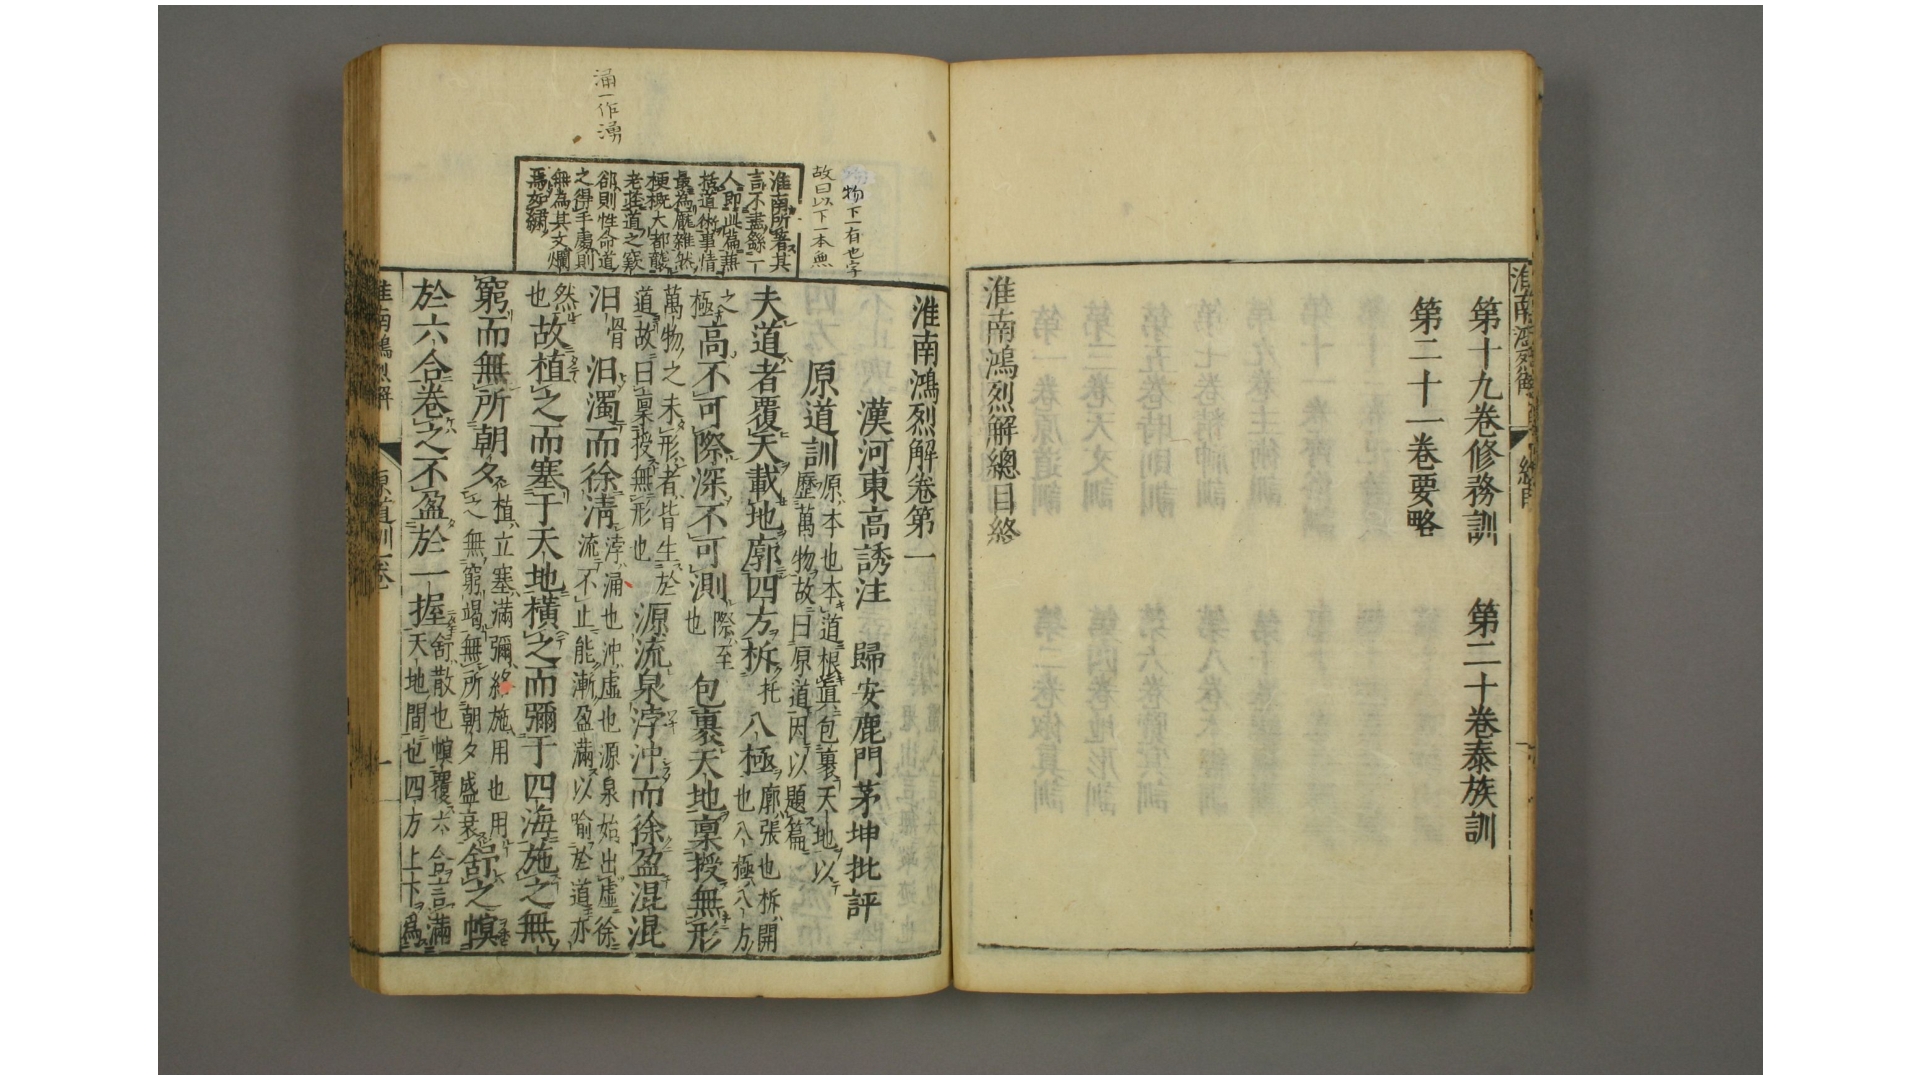 第十九卷修務訓　第二十卷泰族訓
第二十一卷要略
淮南鴻烈解總目終
淮南鴻烈解卷第一
漢河東高誘注　歸安鹿門茅坤批評
原道訓原本也本道根眞包裹天地以
歷萬物故曰原道因以題篇
夫道者覆天載地廓四方柝托八極廓張也柝開
也八極八方
之極高不可際深不可測際至
也包裹天地稟授無形
萬物之未形者皆生於
道故曰稟授無形也源流泉浡沖而徐盈混混
汩骨汩濁而徐淸浡涌也沖虛也源泉始出虛徐
流不止能漸盈滿以喻於道亦
然也故植之而塞于天地橫之而彌于四海施之無
窮而無所朝夕植立塞滿彌終施用也用
之無窮竭無所朝夕盛衰舒之幎
於六合卷之不盈於一握舒散也幎覆六合言滿
天地間也四方上下爲
淮南所著其
言不盡繇一
人卽此篇蕪
括道術事情
最爲龐雜然
梗概大都襲
老莊道之竅
郤則性命道
之得手處則
無爲其文爛
焉如繡
物下一有也字
故曰以下一本無
涌一作湧
淮南鴻烈解
原道訓卷
一